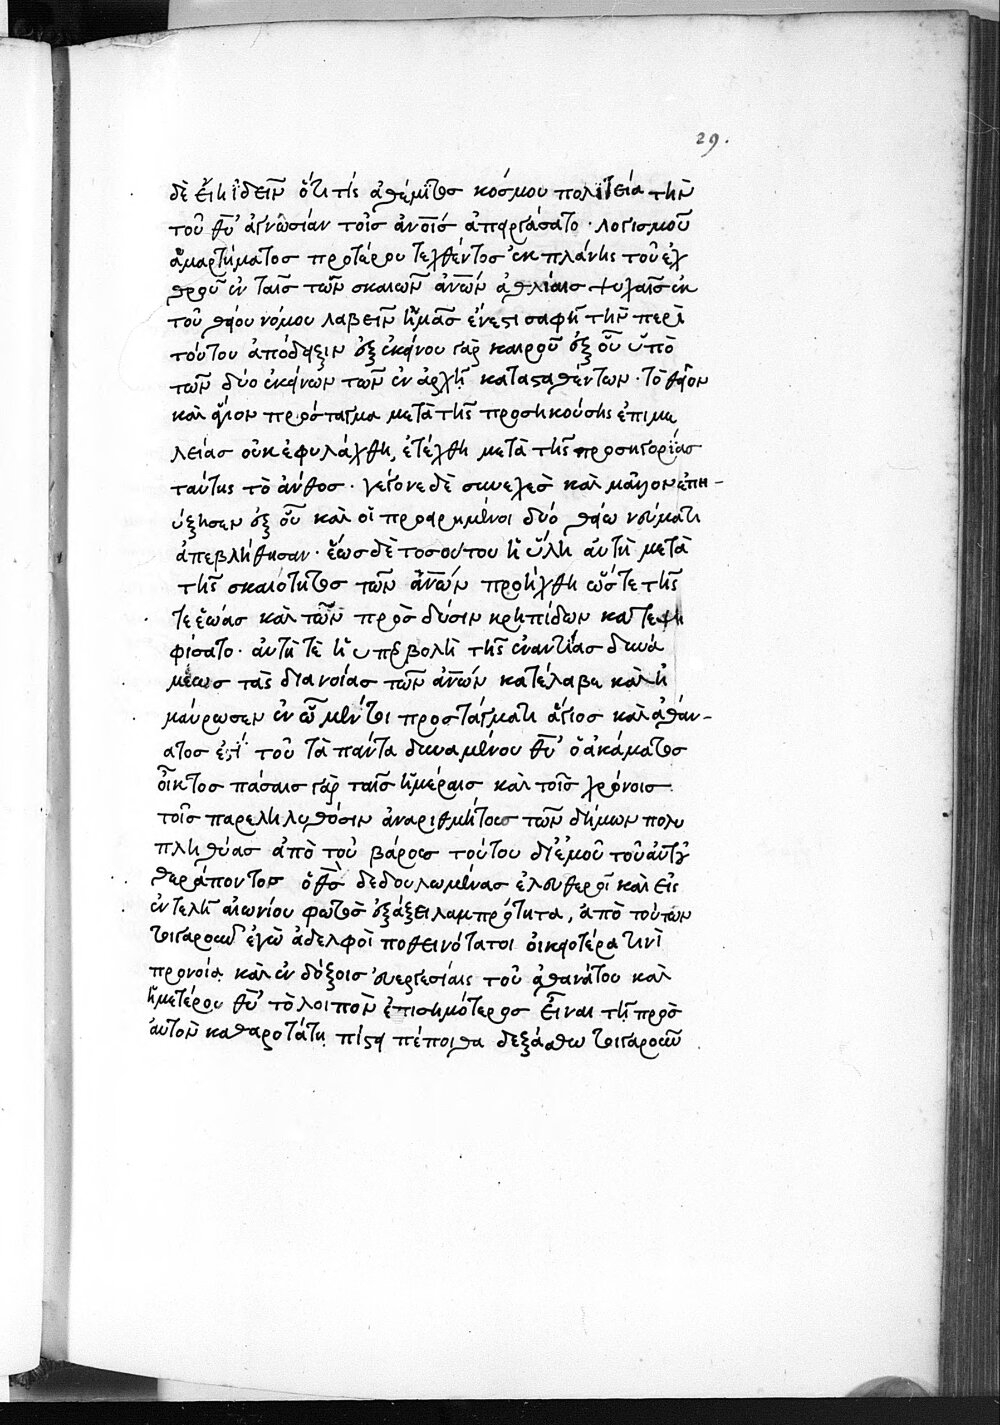 29.
δὲ εἴη ἰδεῖν ὅτι τίς ἀθέμιτος κόσμου πολιτεία τὴν
τοῦ θυ̅ ἀγνωσίαν τοῖς ἀνοις ἀπειργάσατο · λογισμοῦ
ἁμαρτήματος προτέρου τεχθέντος ἐκ πλάνης τοῦ ἐχ
θροῦ ἐν ταῖς τῶν σκαιῶν ἀνων ἀθλίαις ψυχαῖς ἐκ
τοῦ θείου νόμου λαβεῖν ἡμᾶς ἔνεστι σαφῆ τὴν περὶ
τούτου ἀπόδειξιν ἐξ ἐκείνου γὰρ καιροῦ ἐξ οὗ ὑπὸ
τῶν δύο ἐκείνων τῶν ἐν ἀρχῇ κατασταθέντων · τὸ θεῖον
καὶ ἅγιον πρόσταγμα μετὰ τῆς προσηκούσης ἐπιμε
λείας οὐκ ἐφυλάχθη, ἐτέχθη μετὰ τῆς προσηγορίας
ταύτης τὸ ἄνθος · γέγονε δὲ συνεχὲς καὶ μᾶλλον ἐπη-
ύξησεν ἐξ οὗ καὶ οἱ προειρημένοι δύο θείω νεύματι
ἀπεβλήθησαν · ἕως δὲ τοσούτου ἡ ὕλη αὐτὴ μετὰ
τῆς σκαιότητος τῶν ἀνων προήχθη ὥστε τῆς
τε ἕωας καὶ τῶν πρὸς δύσιν κρηπίδων κατεψη
φίσατο · αὐτή τε ἡ ὑπερβολὴ τῆς ἐναντίας δυνά
μεως τὰς διανοίας τῶν ἀνων κατέλαβε καὶ ἠ
μαύρωσεν ἐν ὧ μέντοι προστάγματι ἅγιος καὶ ἀθάν-
ατος ἐστὶ τοῦ τὰ πάντα δυναμένου θυ̅ ὁ ἀκάματος
οἶκτος πάσαις γὰρ ταῖς ἡμέραις καὶ τοῖς χρόνοις
τοῖς παρεληλυθόσιν ἀναριθμήτους τῶν δήμων πολυ
πληθείας ἀπὸ τοῦ βάρους τούτου δι' ἐμοῦ τοῦ αὐτοῦ
θεράποντος ὁ θς̅ δεδουλωμένας ἐλευθεροῖ καὶ εἰς
ἐντελῆ αἰωνίου φωτὸς ἐξάξει λαμπρότητα, ἀπὸ τούτων
τοιγαροῦν ἐγὼ ἀδελφοὶ ποθεινότατοι οἰκειοτέρα τινὶ
προνοία καὶ ἐν δόξοις εὐεργεσίαις τοῦ ἀθανάτου καὶ
ἡμετέρου θυ̅ τὸ λοιπὸν ἐπισημότερος εἶναι τῇ πρὸς
αὐτὸν καθαροτάτη πίστει πέποιθα δεξάσθω τοιγαροῦν